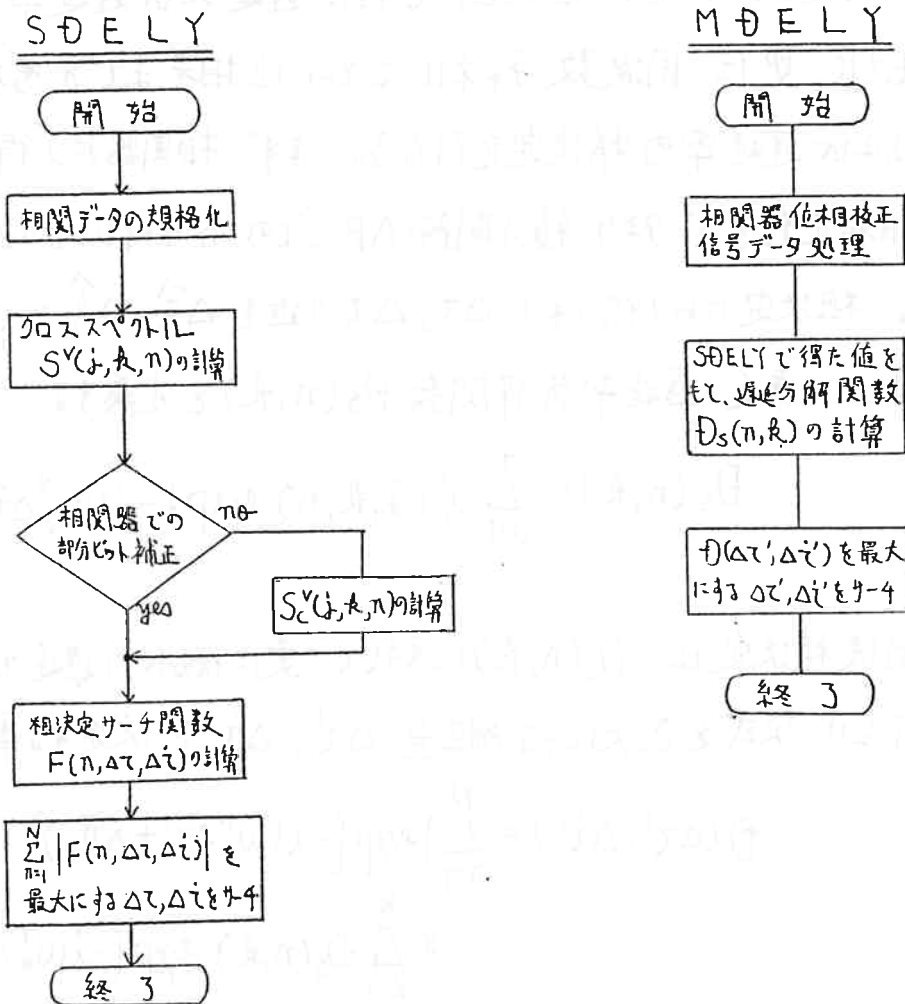 SDELY
開始
相関データの規格化
クロススペクトル
S^v(j,k,n)の計算
相関器での
部分ビット補正
no
yes
S_c^v(j,k,n)の計算
粗決定サーチ関数
F(n,Δτ,Δτ̇)の計算
N
Σ|F(n,Δτ,Δτ̇)|を
n=1
最大にするΔτ,Δτ̇をサーチ
終了
MDELY
開始
相関器位相校正
信号データ処理
SDELYで得た値を
もと、遅延分解関数
D_s(n,k)の計算
D(Δτ',Δτ̇')を最大
にするΔτ',Δτ̇'をサーチ
終了